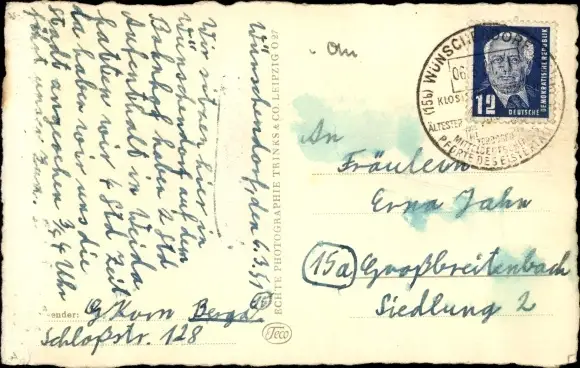 Wünschendorf, den 6.3.51
Wir sitzen hier in
Wünschendorf auf dem
Bahnhof haben 2 Std
Aufenthalt in Weida
hatten wir 4 Std Zeit
da haben wir uns die
Stadt angesehen 3/4 4 Uhr
fährt unser Zug.
ender: G. Korn Berga
Schloßstr. 128
ECHTE PHOTOGRAPHIE TRINKS & CO. LEIPZIG O 27
Teco
An
Fräulein
Erna Jahn
15a Großbreitenbach
Siedlung 2
(15b) WÜNSCHENDORF
06.
KLOS
ÄLTESTE
PFORTE DES ELSTER
12
DEUTSCHE
DEMOKRATISCHE REPUBLIK